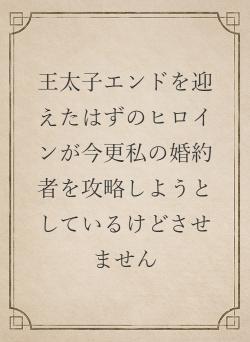 王太子エンドを迎
えたはずのヒロイ
ンが今更私の婚約
者を攻略しようと
しているけどさせ
ません